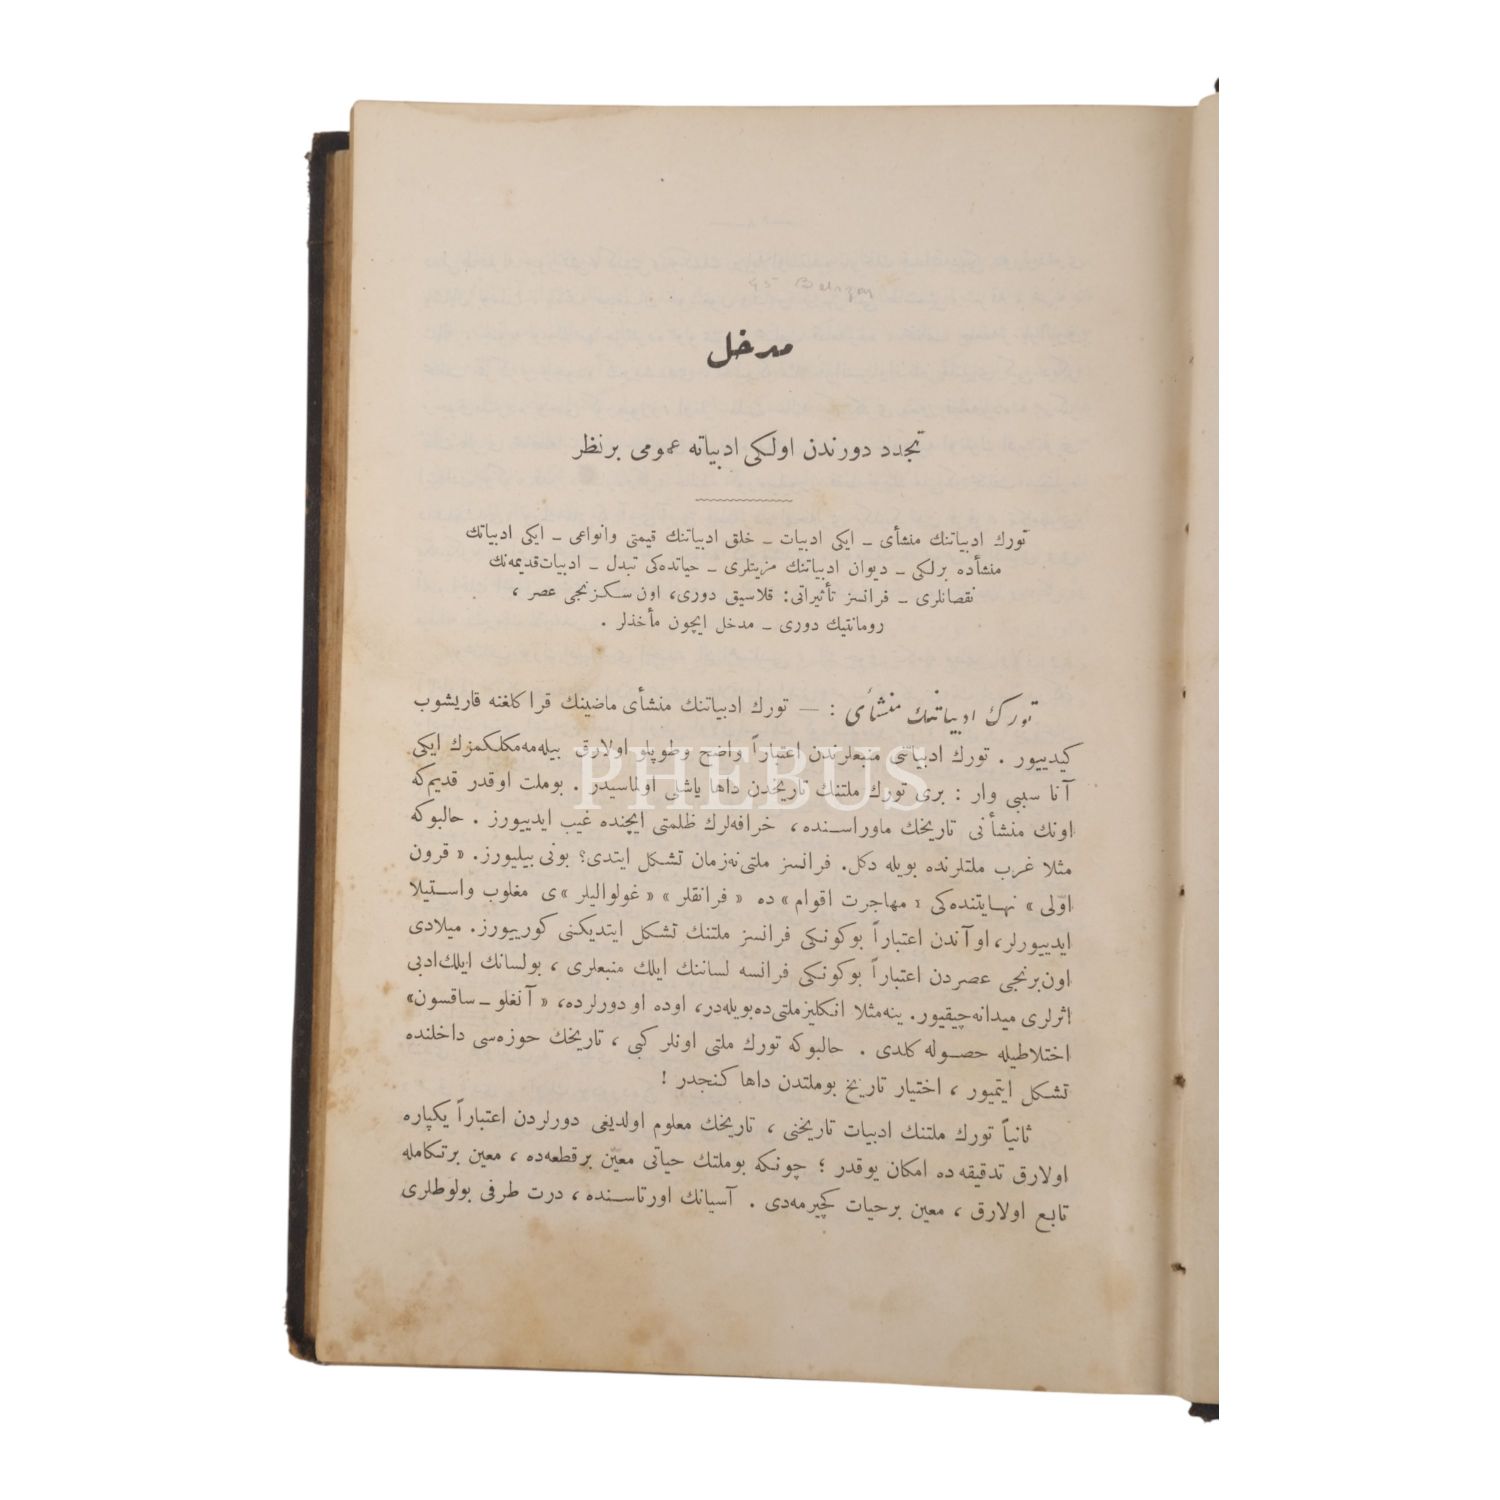 مدخل
تجدد دورندن اولكی ادبیاته عمومی برنظر
تورك ادبیاتنك منشأی ـ ایكی ادبیات ـ خلق ادبیاتنك قیمتی وانواعی ـ ایكی ادبیاتك
منشأده برلكی ـ دیوان ادبیاتنك مزیتلری ـ حیاتده‌كی تبدل ـ ادبیات قدیمه‌نك
نقصانلری ـ فرانسز تأثیراتی: قلاسیق دوری، اون سكزنجی عصر ،
رومانتیك دوری ـ مدخل ایچون مأخذلر .
تورك ادبیاتنك منشأی : — تورك ادبیاتنك منشأی ماضینك قراكلغنه قاریشوب
كیدییور . تورك ادبیاتنی منبعلرندن اعتباراً واضح وطوپلو اولارق بیله‌مه‌مكلكمزك ایكی
آنا سببی وار : بری تورك ملتنك تاریخدن داها یاشلی اولماسیدر . بوملت اوقدر قدیم‌كه
اونك منشأنی تاریخك ماوراسنده ، خرافه‌لرك ظلمتی ایچنده غیب ایدییورز . حالبوكه
مثلا غرب ملتلرنده بویله دكل. فرانسز ملتی نه‌زمان تشكل ایتدی؟ بونی بیلیورز. « قرون
اولی » نهایتنده‌كی « مهاجرت اقوام » ده « فرانقلر » « غولوالیلر »ی مغلوب واستیلا
ایدییورلر، اوآندن اعتباراً بوكونكی فرانسز ملتنك تشكل ایتدیكنی كورییورز. میلادی
اون‌برنجی عصردن اعتباراً بوكونكی فرانسه لساننك ایلك منبعلری ، بولسانك ایلك‌ادبی
اثرلری میدانه‌چیقیور. ینه‌مثلا انكلیزملتی‌ده‌بویله‌در، اوده او دورلرده، « آنغلو ـ ساقسون»
اختلاطیله حصوله كلدی . حالبوكه تورك ملتی اونلر كبی ، تاریخك حوزه‌سی داخلنده
تشكل ایتمیور ، اختیار تاریخ بوملتدن داها كنجدر !
ثانیاً تورك ملتنك ادبیات تاریخنی ، تاریخك معلوم اولدیغی دورلردن اعتباراً یكپاره
اولارق تدقیقه ده امكان یوقدر ؛ چونكه بوملتك حیاتی معین برقطعه‌ده ، معین برتكامله
تابع اولارق ، معین برحیات كچیرمه‌دی . آسیانك اورتاسنده ، درت طرفی بولوطلری
PHEBUS